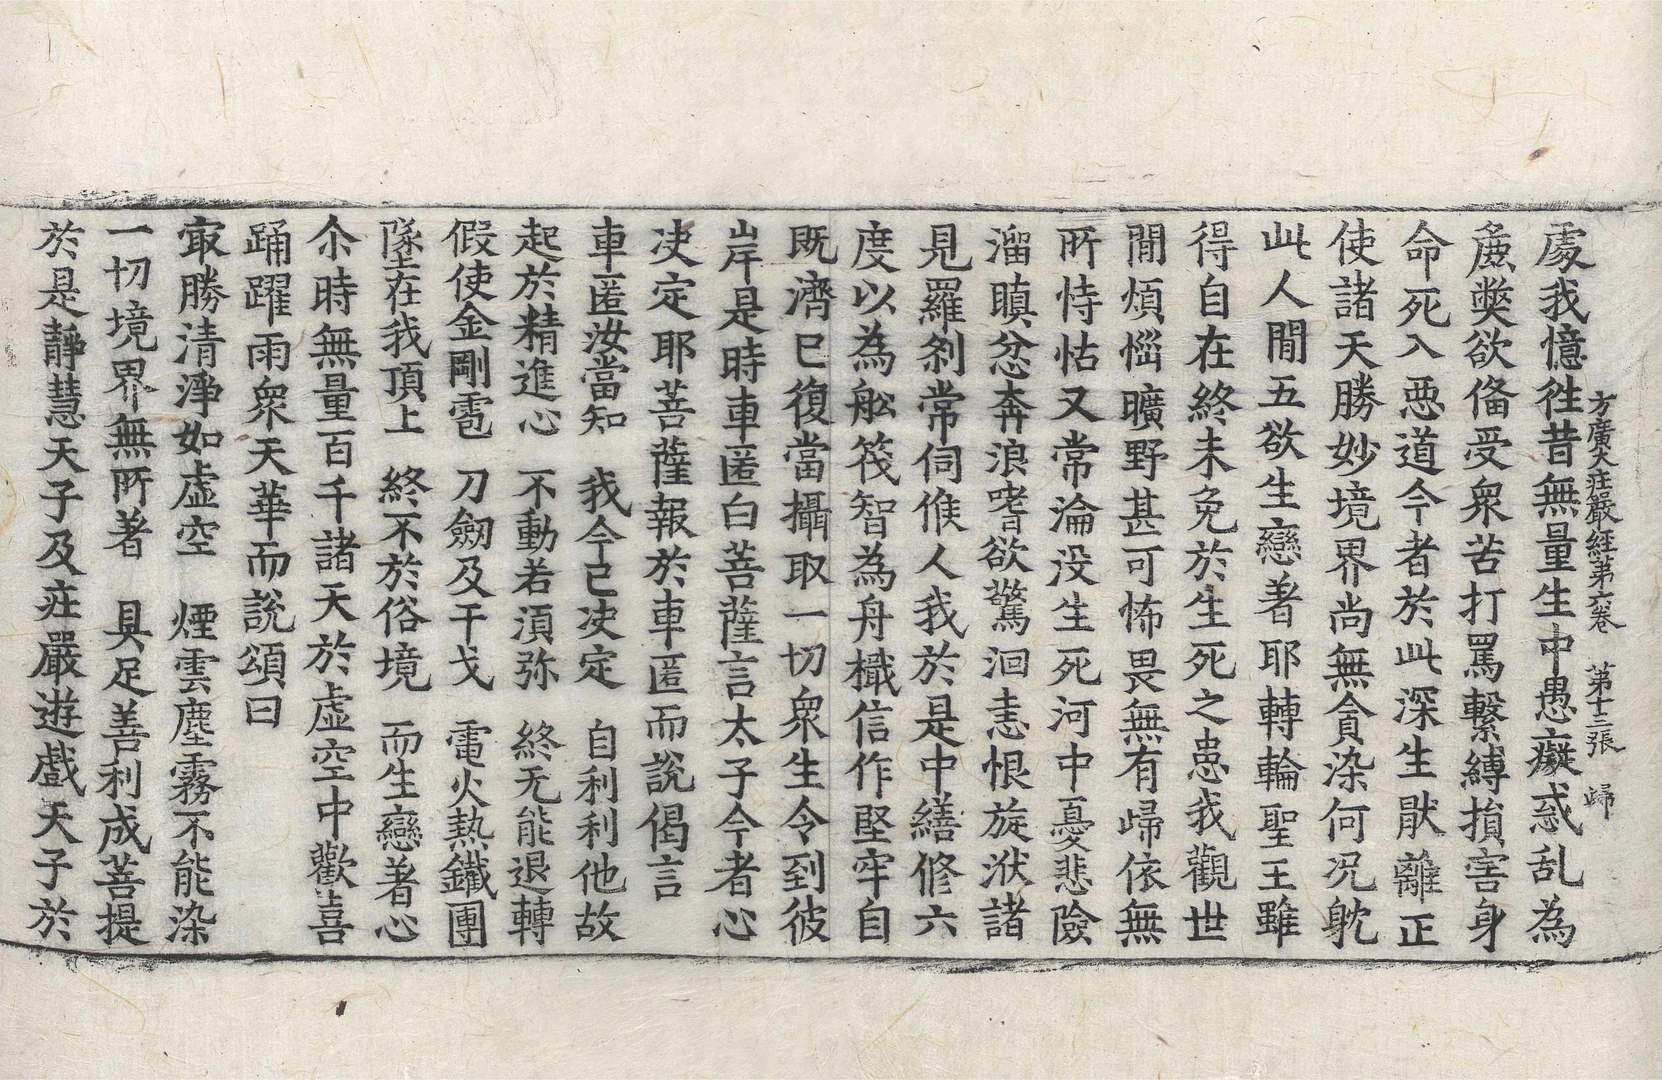 方廣大莊嚴經第六卷 第十三張 歸
處我憶往昔無量生中愚癡惑乱為
麁獘欲俻受衆苦打罵繫縛損害身
命死入惡道今者於此深生猒離正
使諸天勝妙境界尚無貪染何况躭
此人間五欲生戀著耶轉輪聖王雖
得自在終未免於生死之患我觀世
間煩惱曠野甚可怖畏無有歸依無
所恃怙又常淪没生死河中憂悲險
溜瞋忿奔浪嗜欲驚洄恚恨旋洑諸
見羅剎常伺候人我於是中繕修六
度以為舩筏智為舟檝信作堅牢自
既濟已復當攝取一切衆生令到彼
岸是時車匿白菩薩言太子今者心
决定耶菩薩報於車匿而說偈言
車匿汝當知 我今已决定 自利利他故
起於精進心 不動若湏弥 終无能退轉
假使金剛雹 刀劒及干戈 電火熱鐵團
墜在我頂上 終不於俗境 而生戀著心
尒時無量百千諸天於虛空中歡喜
踊躍雨衆天華而說頌曰
㝡勝清淨如虛空 煙雲塵霧不能染
一切境界無所著 具足善利成菩提
於是靜慧天子及莊嚴遊戲天子於